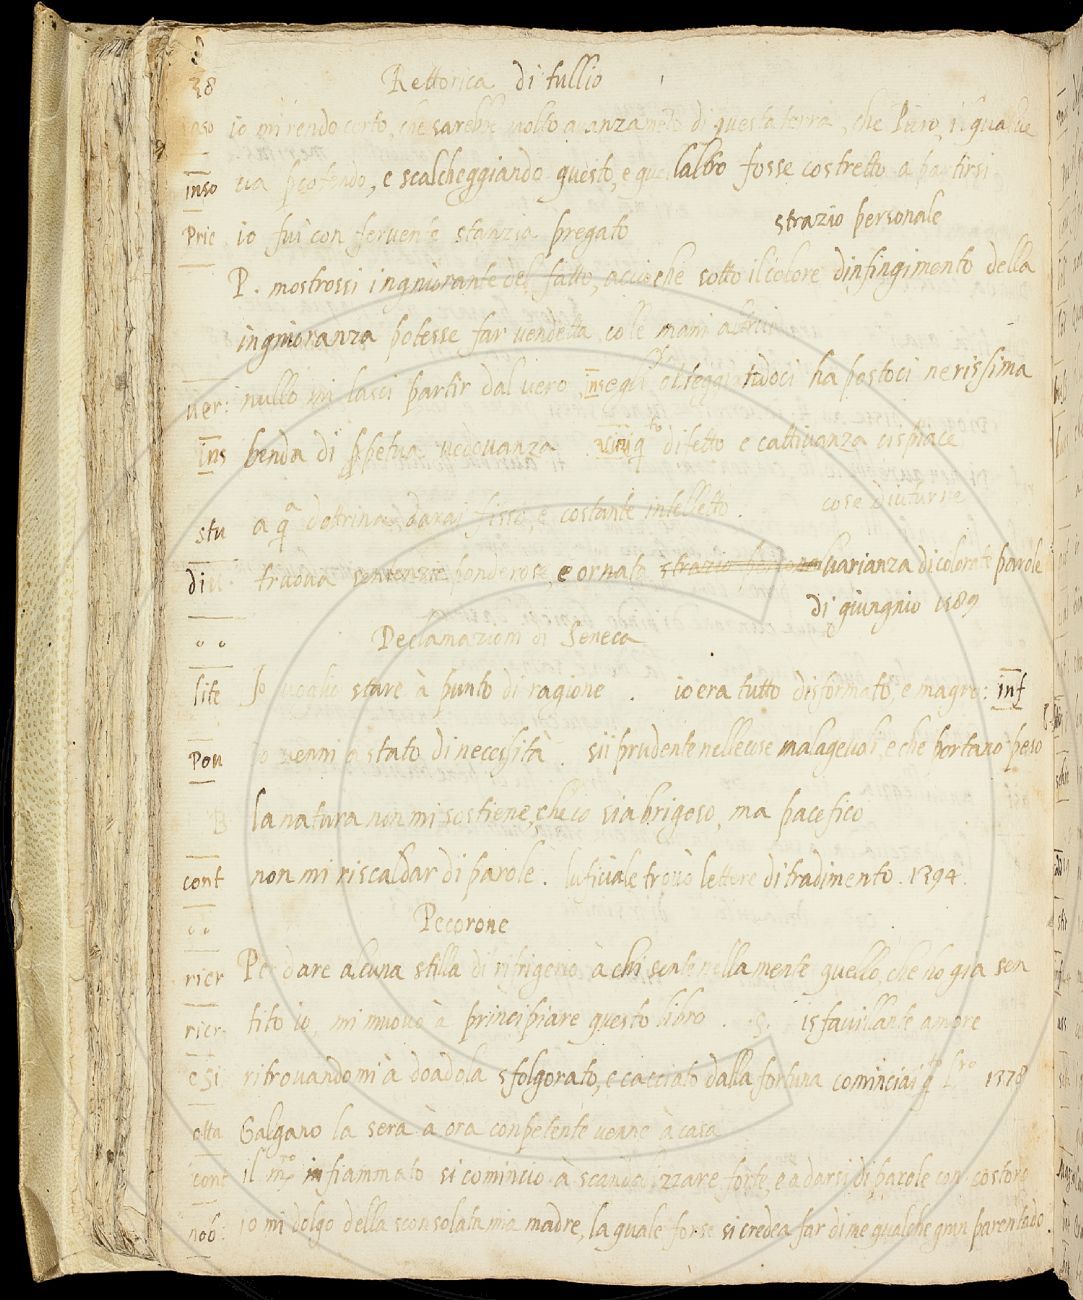 38
Rettorica di tullio
io mi rendo certo, che sarebbe molto avanzamento di questa terra, che Piero, il quale
inso
va percotendo, e scalcheggiando questo, e quell'altro fosse costretto a partirsi
Prie
io fui con fervente stanzia pregato strazio personale
P. mostrossi ingnorante del fatto, accioche sotto il colore d'infingimento della
ingnioranza potesse far vendetta co le mani altrui
ver:
nullo mi lasci partir dal vero, ha postoci nerissima
ins
benda di ppetua vedovanza difetto e cattivanza ci spiace
stu
a q̃a dottrina darai fisso, e costante intelletto. cose diuturne
diu
truova sentenzie ponderose, e ornato strazio persona varianza di colorate parole
di giungnio 1589
Declamazioni di Seneca
lite
Io voglio stare à punto di ragione . io era tutto disformato, e magro: inf
Pou
io venni a stato di necessità . sii prudente nelle cose malagevoli, e che portano peso
B
la natura non mi sostiene, che io sia brigoso, ma pacefico
cont
non mi riscaldar di parole. luficiale trovò lettere di tradimento . 1394.
Pecorone
ricr
Per dare alcuna stilla di rifrigerio à chi sente nella mente quello, che ho gia sen
ricr
tito io, mi muovo à principiare questo libro . isfavillante amore
esi
ritrovandomi à doadola sfolgorato, e cacciato dalla fortuna cominciai q̃to libro 1378
otta
Galgano la sera à ora conpetente venne à casa
cont
il mro infiammato si comincio à scandalizzare forte, e a darsi di parole con costoro
nob:
io mi dolgo della sconsolata mia madre, la quale forse si credea far di me qualche gran parentado